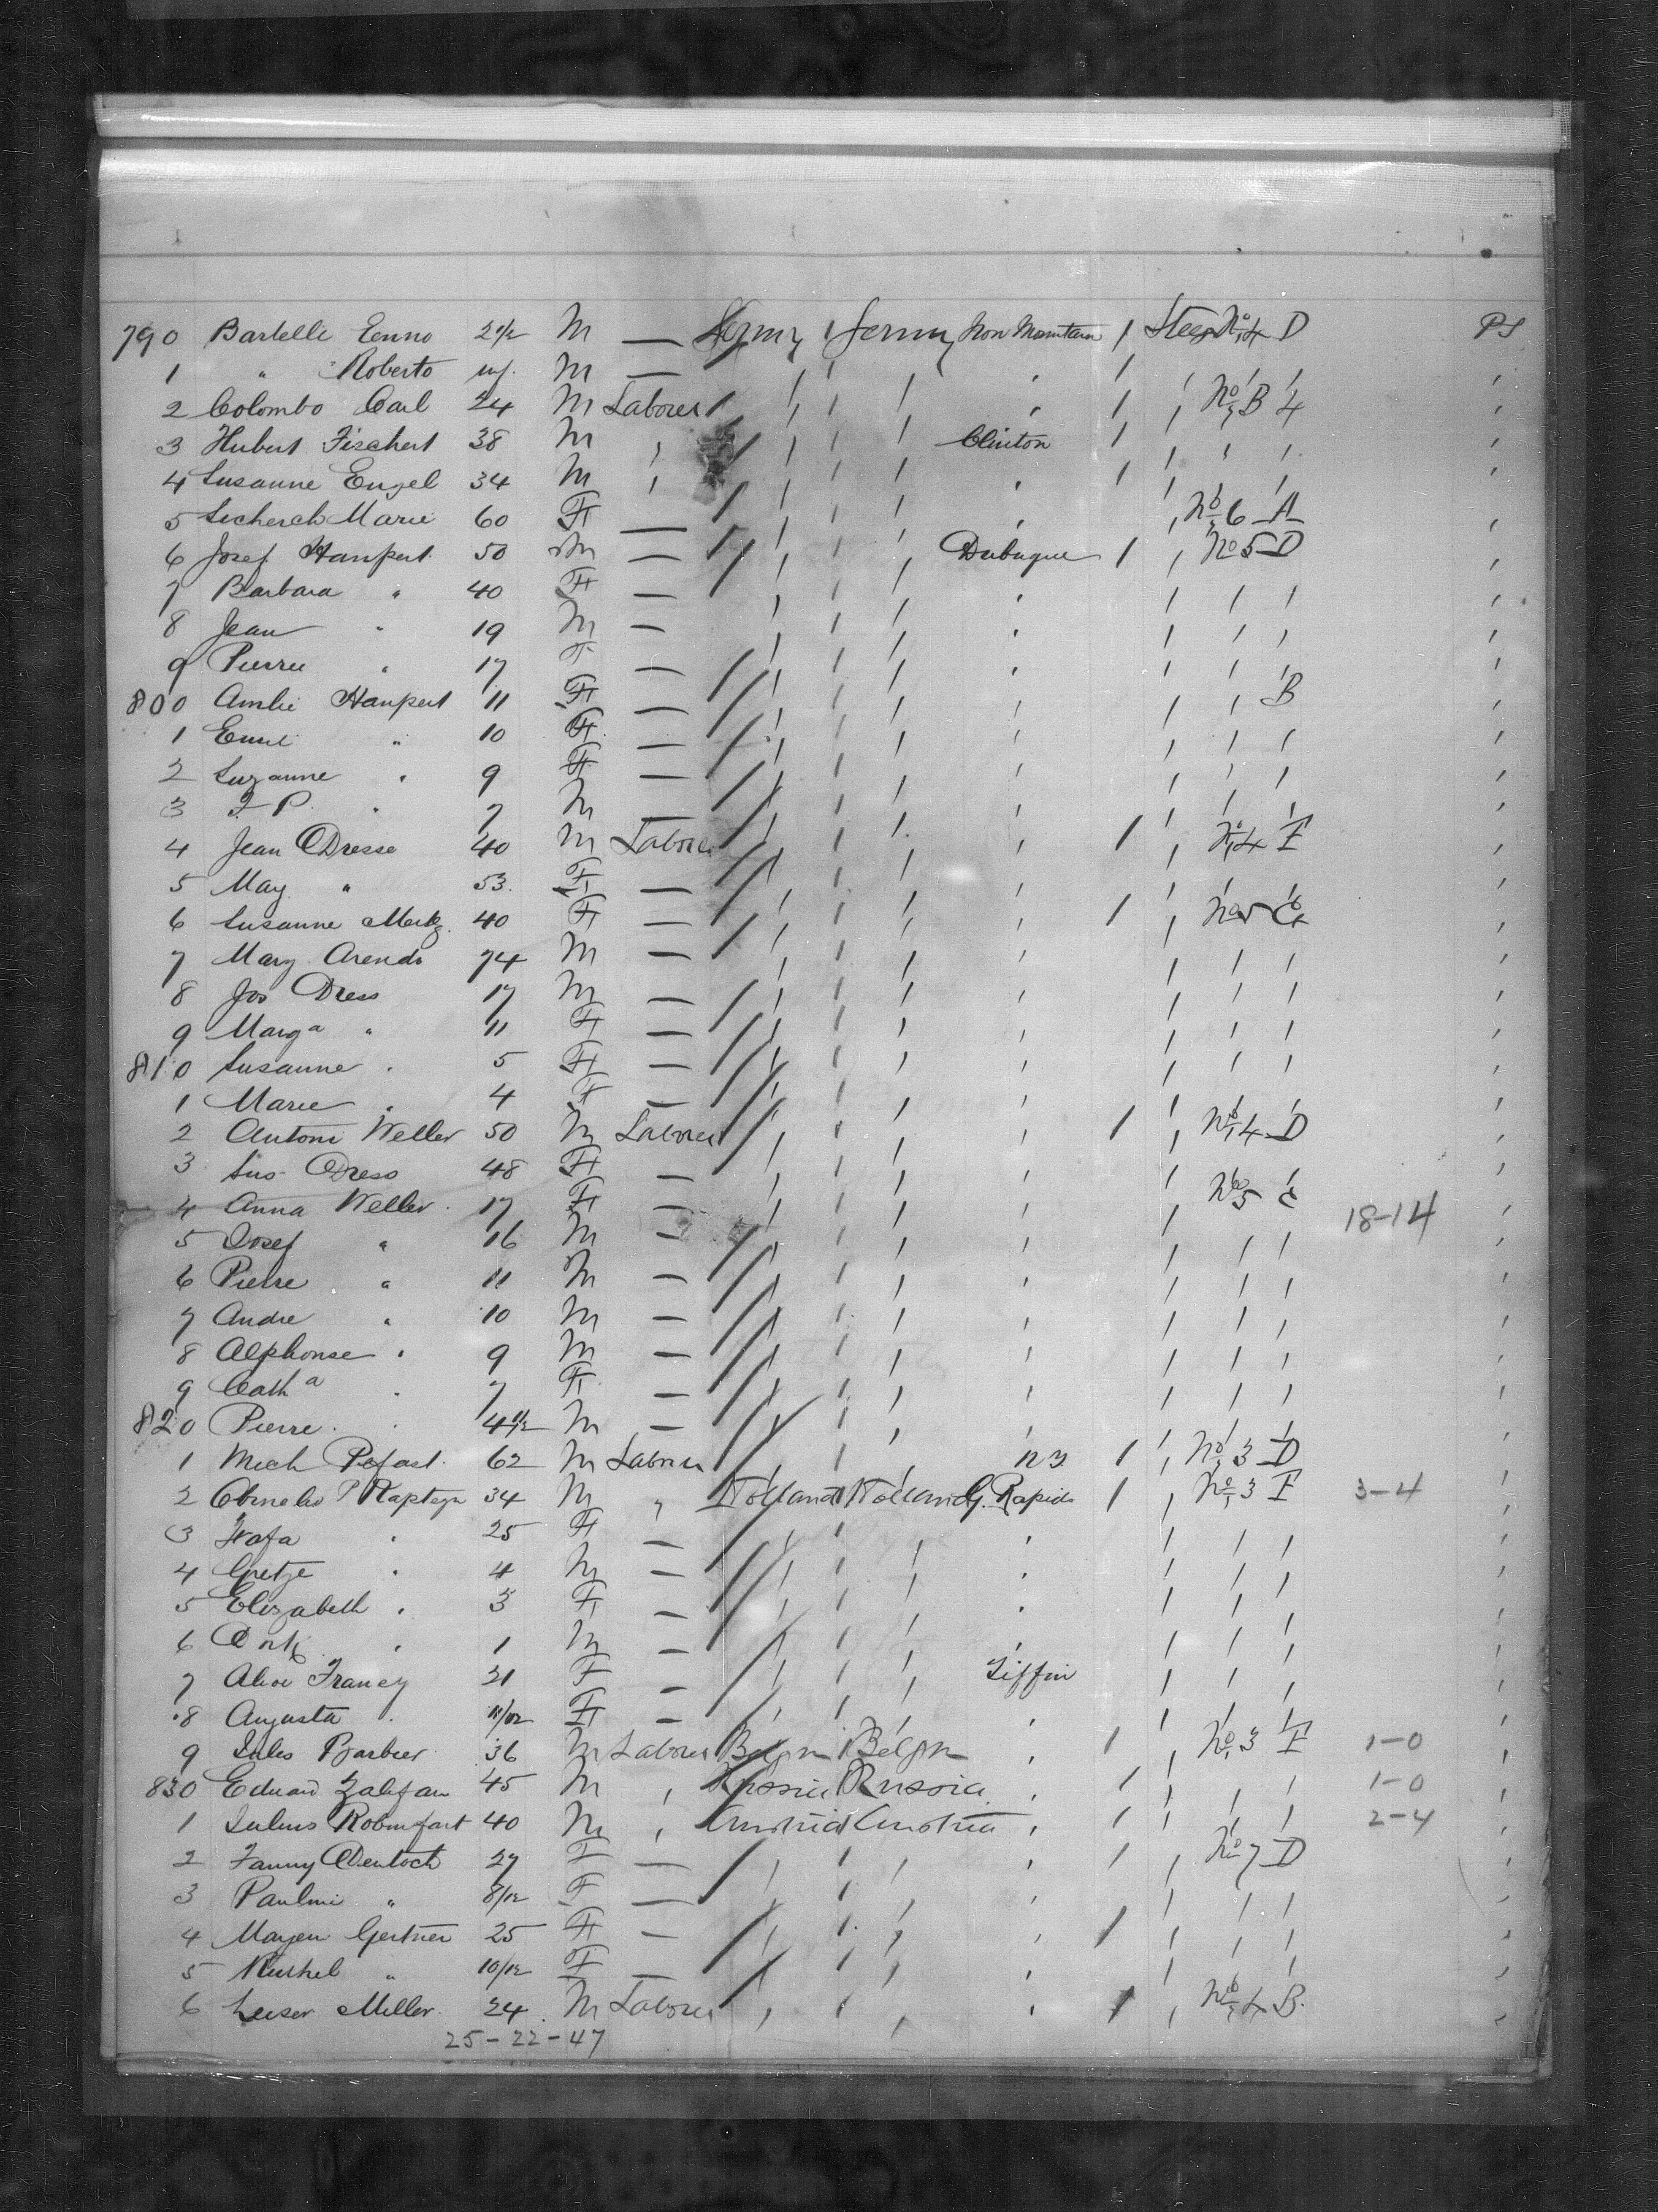 790 Bartelle Enno M — Germy Germy Iron Mountain 1 Steer No 4 D PS
1 " Roberto inf. M — 1
2 Colombo Carl 24 M Laborer 1 No B 4
3 Hubert Fischert 38 M " Clinton 1
4 Susanne Engel 34 M " 1
5 Marie 60 F — No 6 A
6 Josef Hanpert 50 M — Dubuque 1 No 5 D
7 Barbara " 40 F —
8 Jean " 19 M —
9 Pierre " 17 F —
800 Amlie Hanpert 11 F — B
1 Emil " 10 F —
2 Suzanne " 9 F —
3 J P " 7 M —
4 Jean Dresse 40 M Laborer 1 No 4 F
5 May " 53 F —
6 Susanne Mertz 40 F — 1 No 5 C
7 Mary Arends 74 M —
8 Jos Dress 17 M —
9 Marga " 11 F —
810 Susanne " 5 F —
1 Marie " 4 F —
2 Antoni Weller 50 M Laborer 1 No 4 D
3 Sus Dress 48 F — No 5 C
4 Anna Weller 17 F — 18-14
5 Josef " 16 M —
6 Pierre " 11 M —
7 Andre " 10 M —
8 Alphonse " 9 M —
9 Catha " 7 F —
820 Pierre " M —
1 Mich 62 M Laborer N Y 1 No 3 D
2 34 M " Holland Holland G. Rapids 1 No 3 F 3-4
3 " 25 F —
4 Gretze " 4 M —
5 Elizabeth " 3 F —
6 " 1 M —
7 Francy 21 F — Tiffin
8 Augusta " F —
9 Jules Barbier 36 M Laborer Belgm Belgm 1 No 3 F 1-0
830 Eduard 45 M " Russia Russia 1 1-0
1 Julius 40 M " Austria Austria 1 2-4
2 Fanny 27 F — 1 No 7 D
3 Paulini " 8/12 F —
4 Mayem Gertner 25 F — 1
5 " 10/12 F —
6 Leiser Miller 24 M Laborer 1 No 4 B
25-22-47